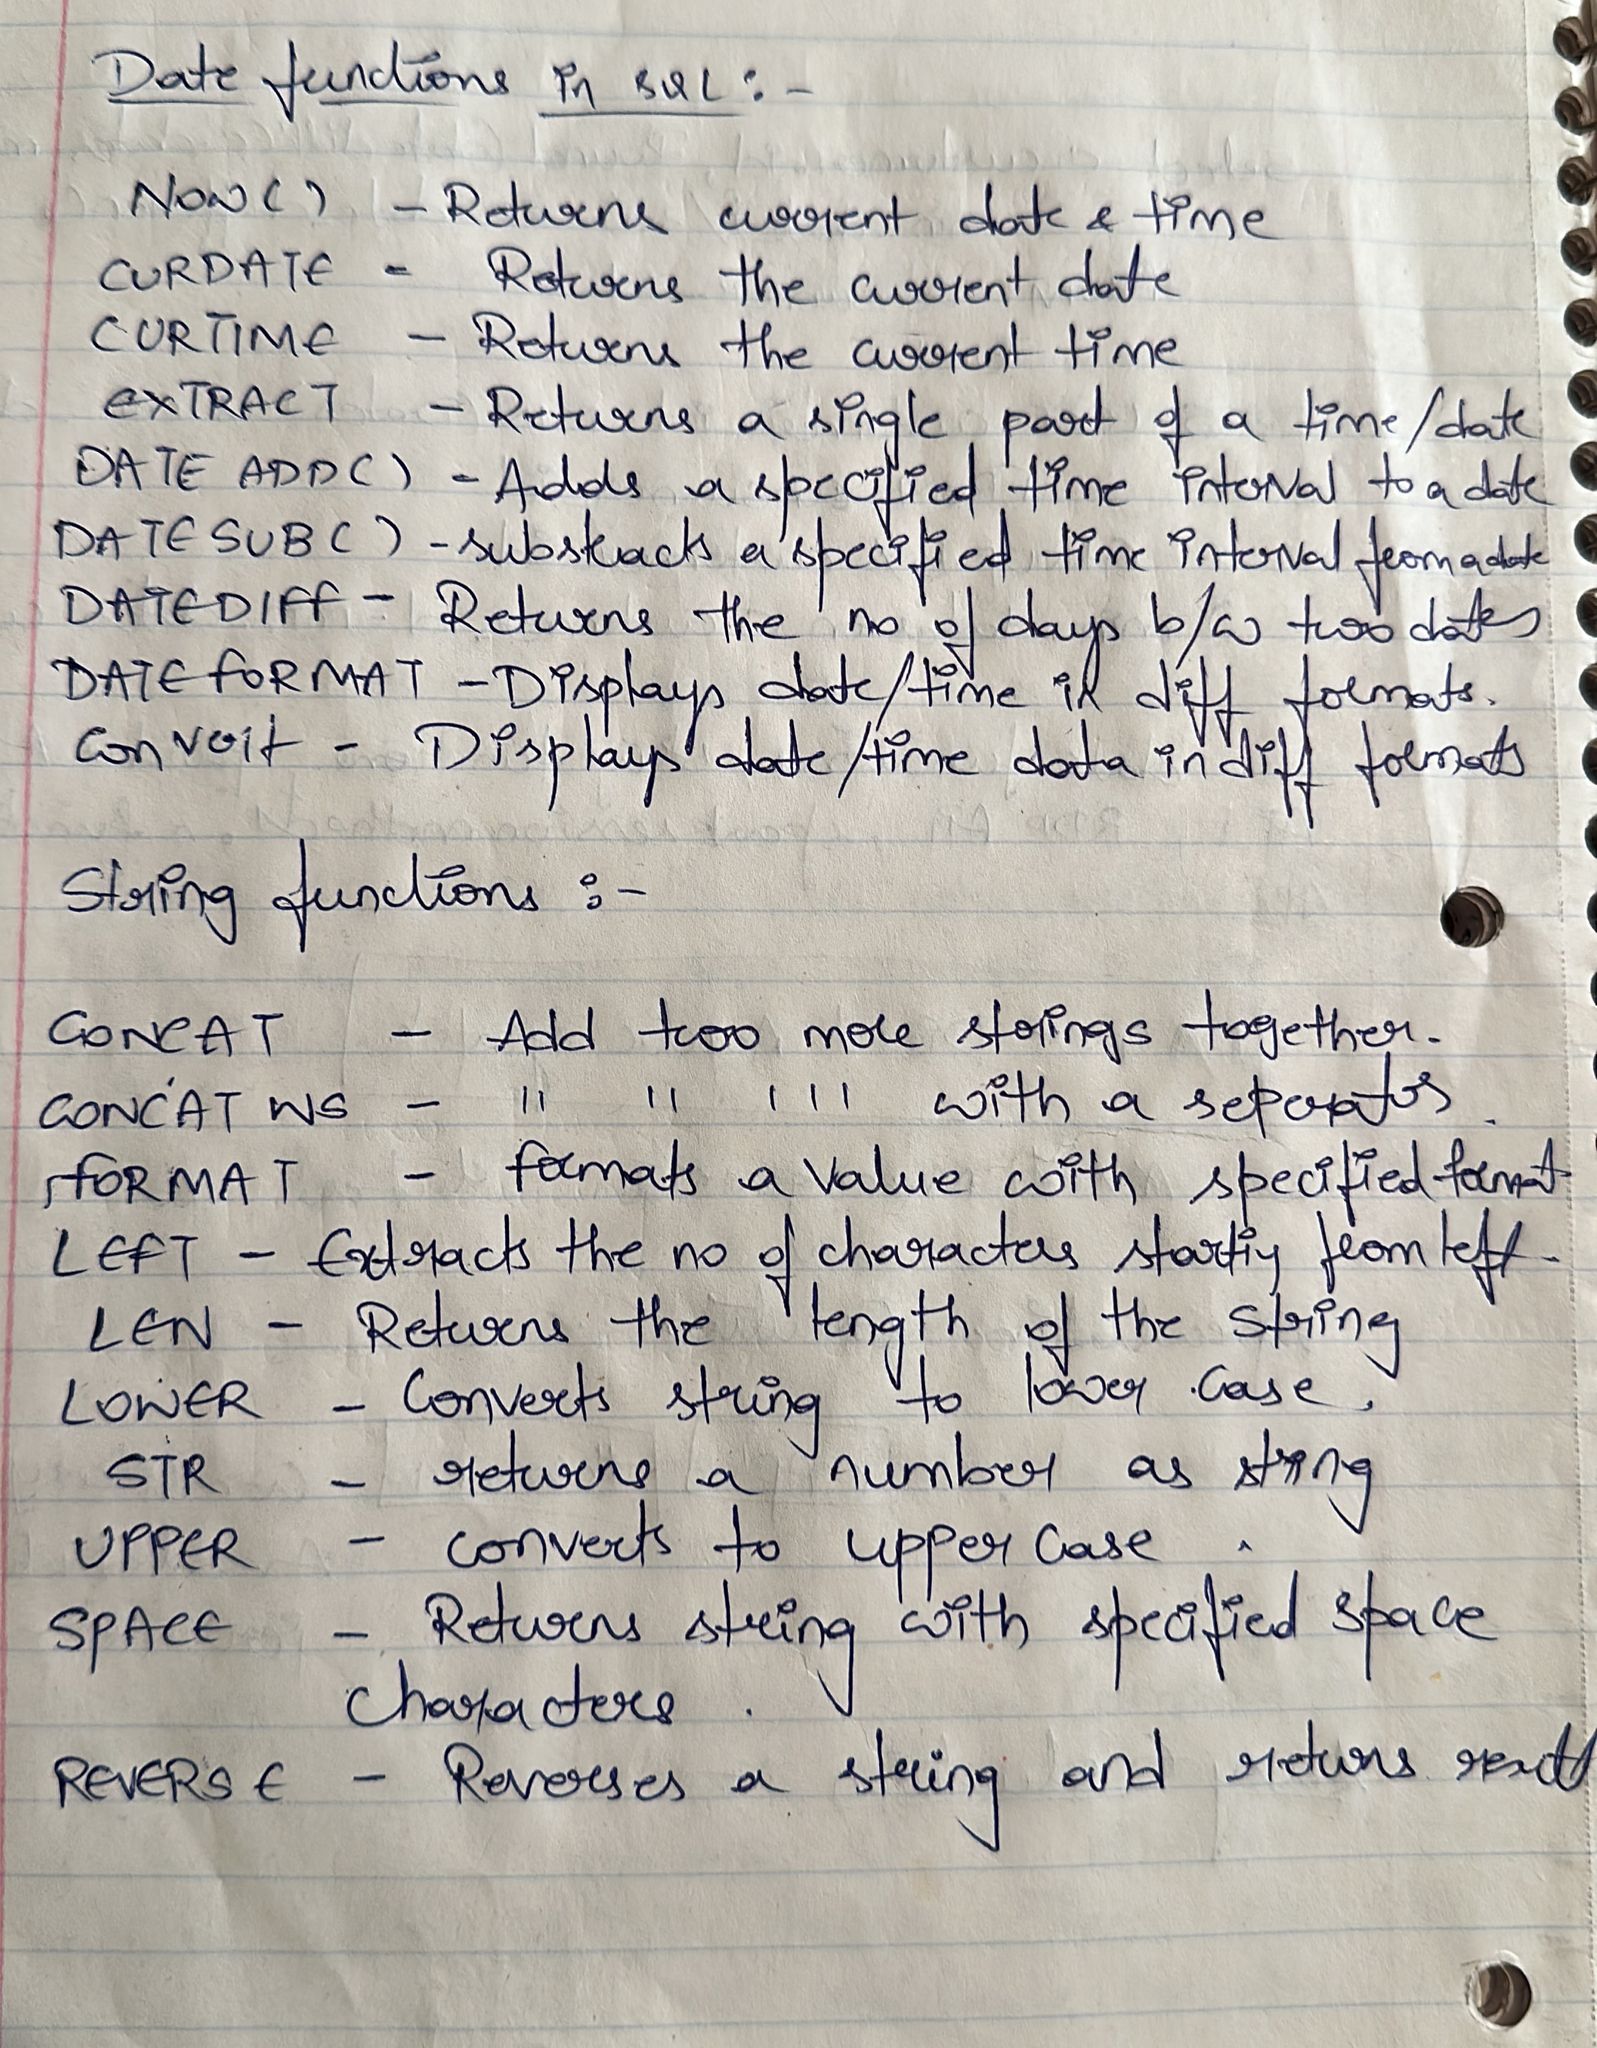 Date functions in SQL :-
NOW() - Returns current date & time
CURDATE - Returns the current date
CURTIME - Returns the current time
EXTRACT - Returns a single part of a time/date
DATE ADD() - Adds a specified time interval to a date
DATE SUB() - substracts a specified time interval from a date
DATEDIFF - Returns the no of days b/w two dates
DATE FORMAT - Displays date/time in diff formats.
Convert - Displays date/time data in diff formats
String functions :-
CONCAT - Add two more strings together.
CONCAT WS - " " " with a seperator.
FORMAT - formats a value with specified format
LEFT - Extracts the no of characters starting from left.
LEN - Returns the length of the string
LOWER - Converts string to lower case.
STR - returns a number as string
UPPER - converts to upper case.
SPACE - Returns string with specified space
characters.
REVERSE - Reverses a string and returns result